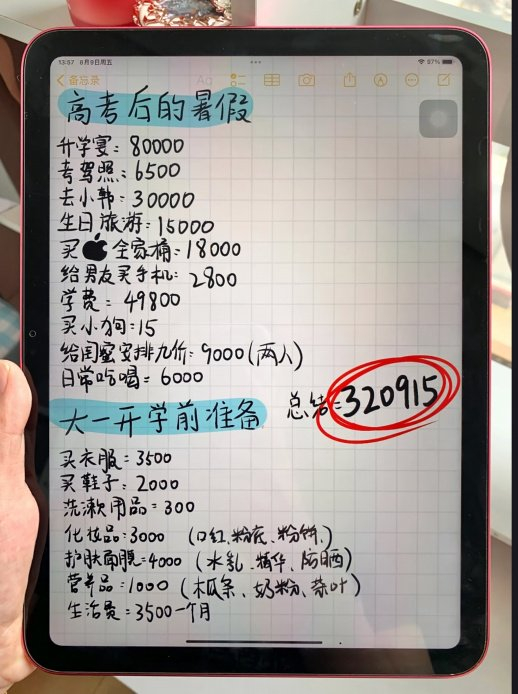 13:57 8月9日周五
97%
备忘录
Aa
高考后的暑假
升学宴：80000
考驾照：6500
去小韩：30000
生日旅游：15000
买全家桶：18000
给男友买手机：2800
学费：49800
买小狗：15
给闺蜜安排九价：9000（两人）
日常吃喝=6000
总结=320915
大一开学前准备
买衣服=3500
买鞋子：2000
洗漱用品=300
化妆品：3000 （口红、粉底、粉饼、）
护肤面膜=4000 （水乳、精华、防晒）
营养品：1000（木瓜条、奶粉、茶叶）
生活费=3500一个月